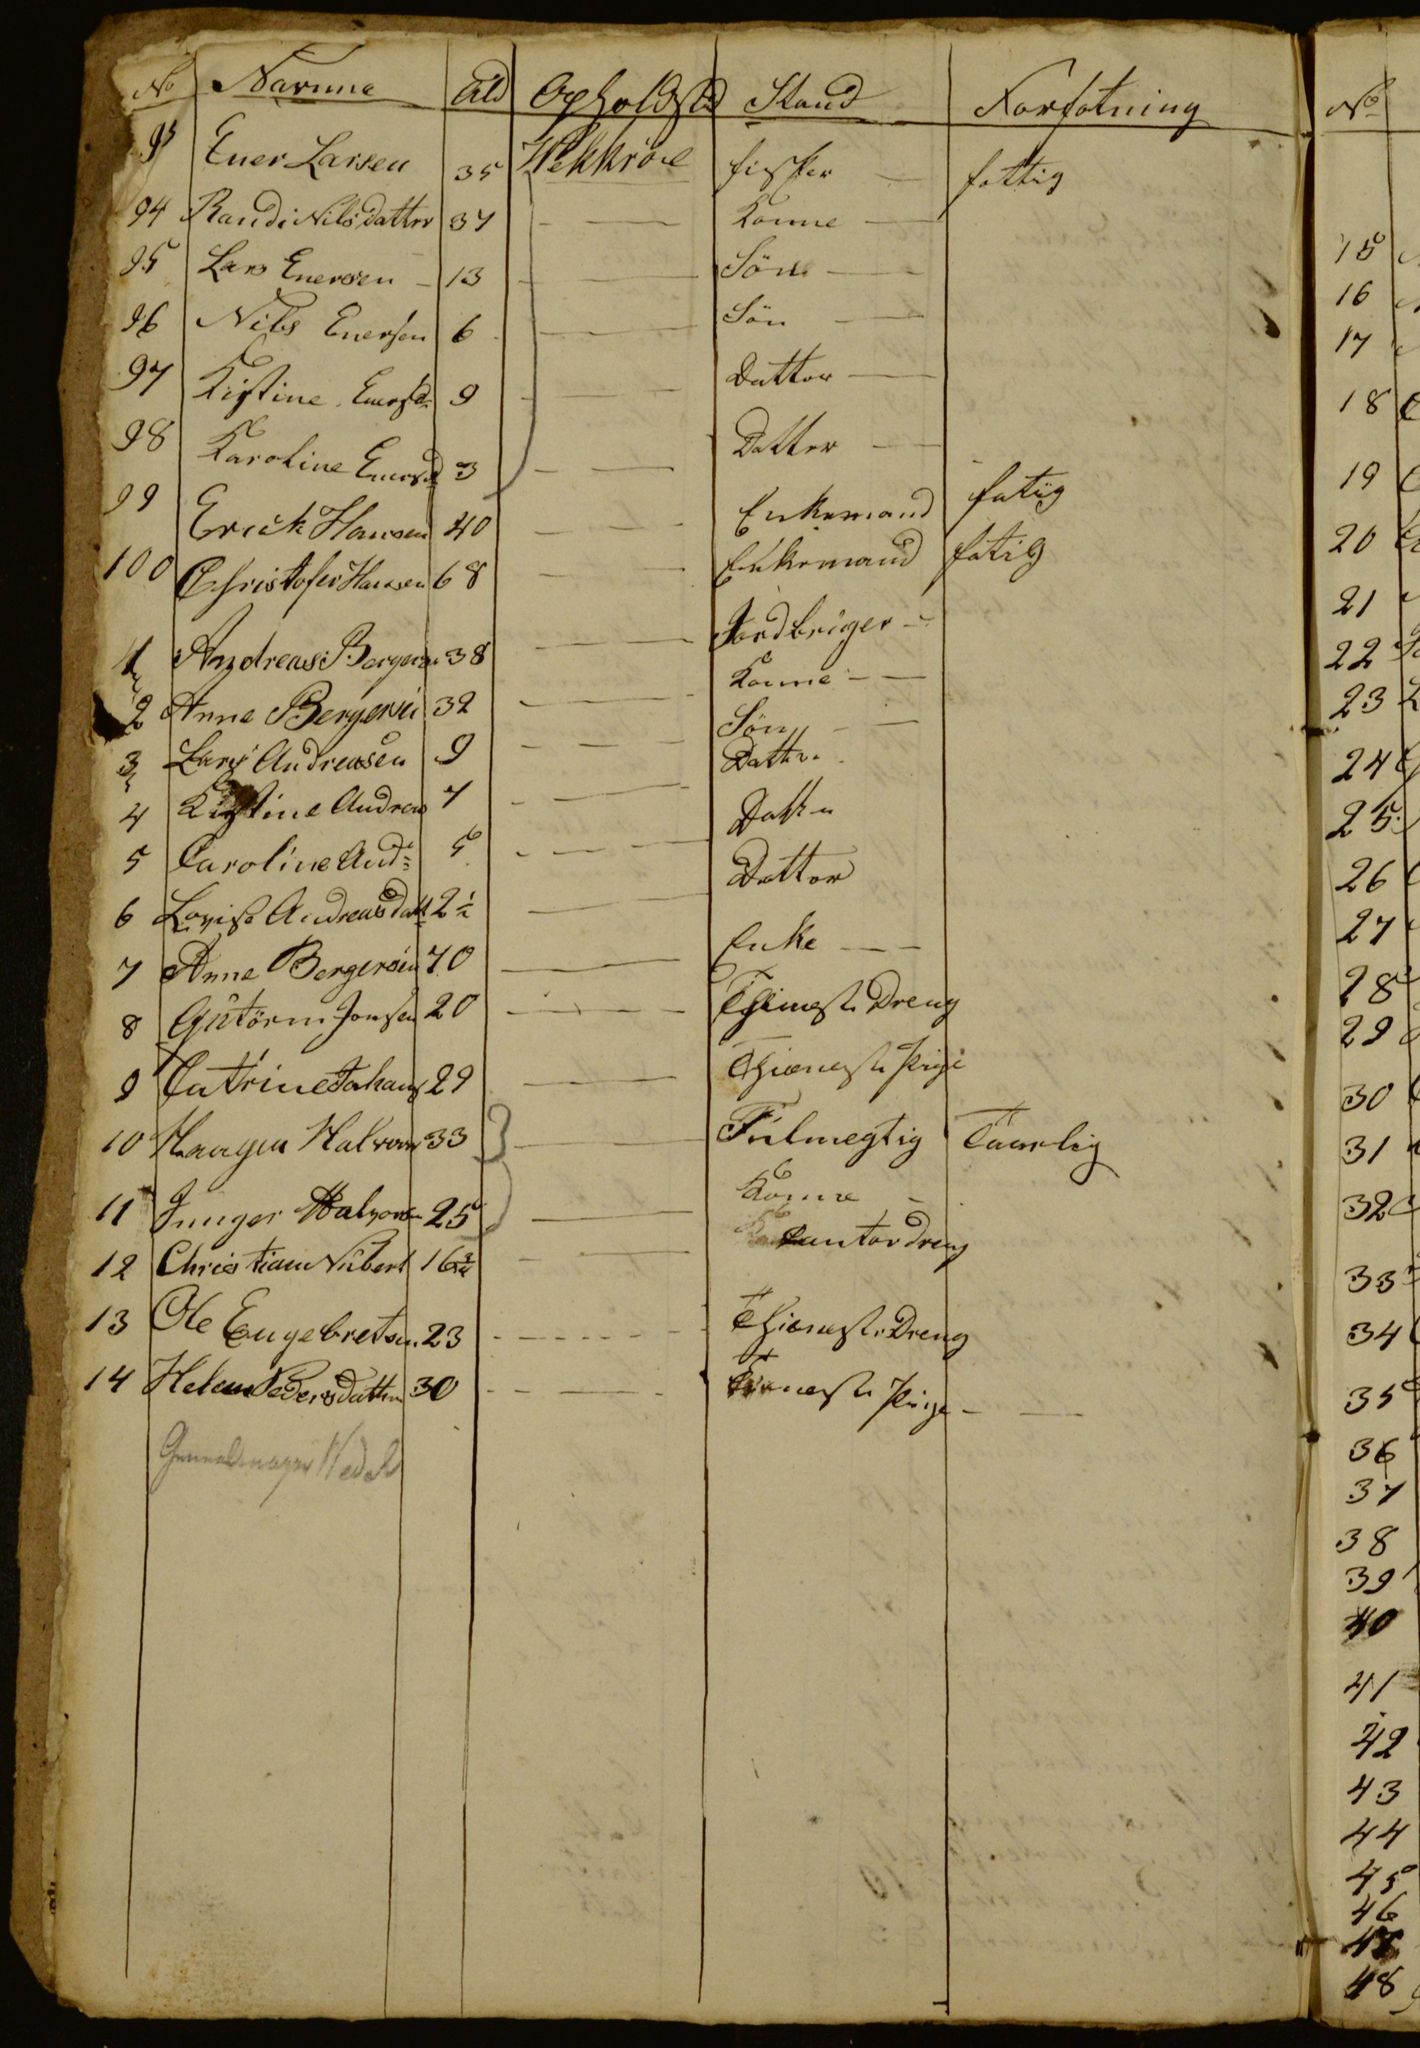 No Navnne Ald Opholdst Stand Forfatning
93 Ener Larsen 35 Wekkröe fisker — fattig
94 Randi Nilsdatter 37 — — Konne —
95 Lars Enersen — 13 — — Sön — —
96 Nils Enersen 6 — — Sön — —
97 Kistine Enersd 9 — — Datter —
98 Karoline Enersd 3 — — Datter — —
99 Erick Hansen 40 — — Enkemand fatiig
100 Christofer Hansen 68 — — Enkemand fatig
1 Andreas Bergersen 38 — — Jordbriger —
2 Anne Bergersen 32 — — Konne — —
3 Lars Andreasen 9 — — Sön —
4 Kistine Andreas 7 — — Datter
5 Caroline Andr 5 — — — Datter
6 Lovise Andreasdatt 2½ — — Datter
7 Anne Bergersen 70 — — Enke — —
8 Gutörm Jonsen 20 — — — Thieneste Dreng
9 Catrine Johans 29 — — Thieneste Pige
10 Haagen Halvorsn 33 — — Fulmegtig Taarlig
11 Innger Halvorsn 25 — — Konne —
12 Christian Nübert 16¾ — — Cantordreng
13 Ole Engebretsen 23 — — — Thieneste Dreng
14 Helene Pedersdatter 30 — — — Tieneste Pige — —
Generalmayor Wedel
No
15
16
17
18
19
20
21
22
23
24
25
26
27
28
29
30
31
32
33
34
35
36
37
38
39
40
41
42
43
44
45
46
47
48